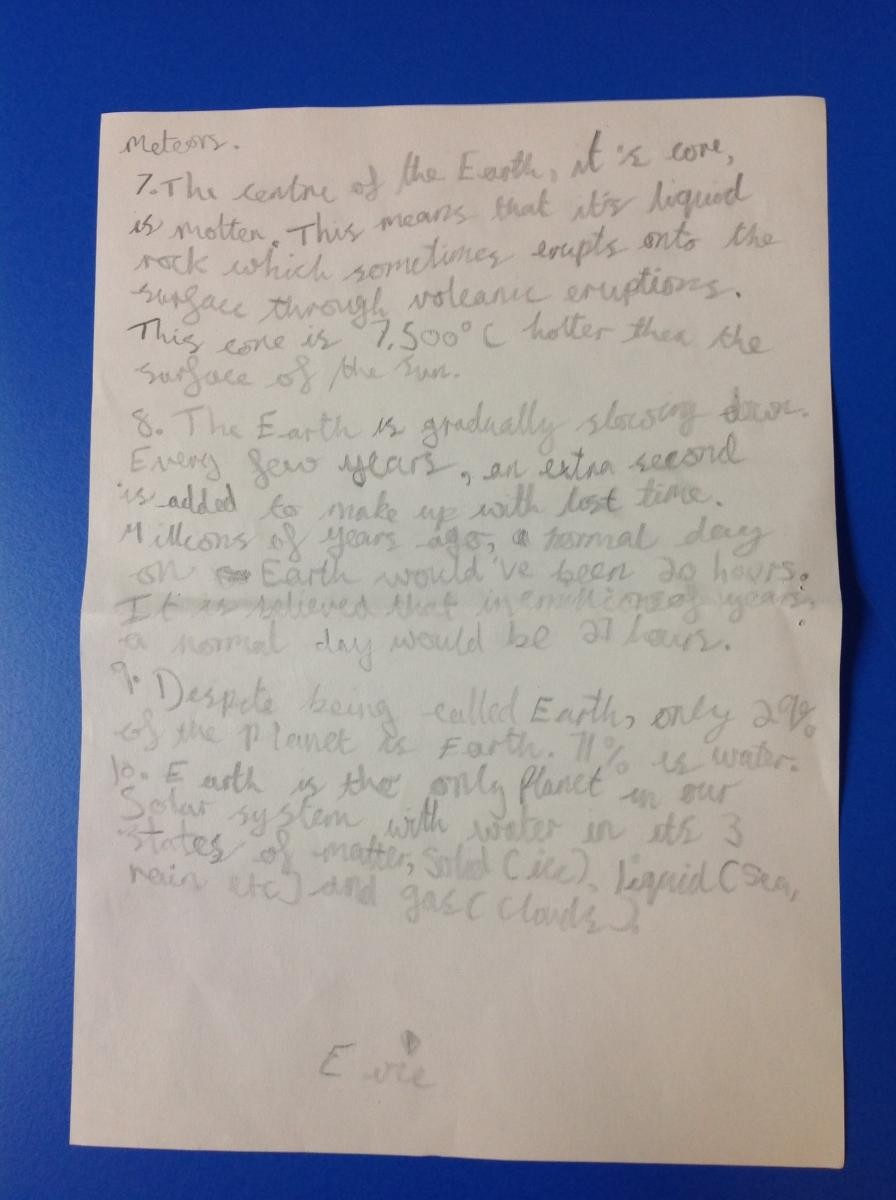 meteors.
7. The centre of the Earth, it's core,
is molten. This means that it's liquid
rock which sometimes erupts onto the
surface through volcanic eruptions.
This core is 7,500°C hotter then the
surface of the Sun.
8. The Earth is gradually slowing down.
Every few years, an extra second
is added to make up with lost time.
Millions of years ago, a normal day
on Earth would've been 20 hours.
It is believed that in millions of years,
a normal day would be 27 hours.
9. Despite being called Earth, only 29%
of the Planet is Earth. 71% is water.
10. Earth is the only Planet in our
Solar system with water in its 3
states of matter, Solid (ice), liquid (sea,
rain etc) and gas (clouds).
Evie